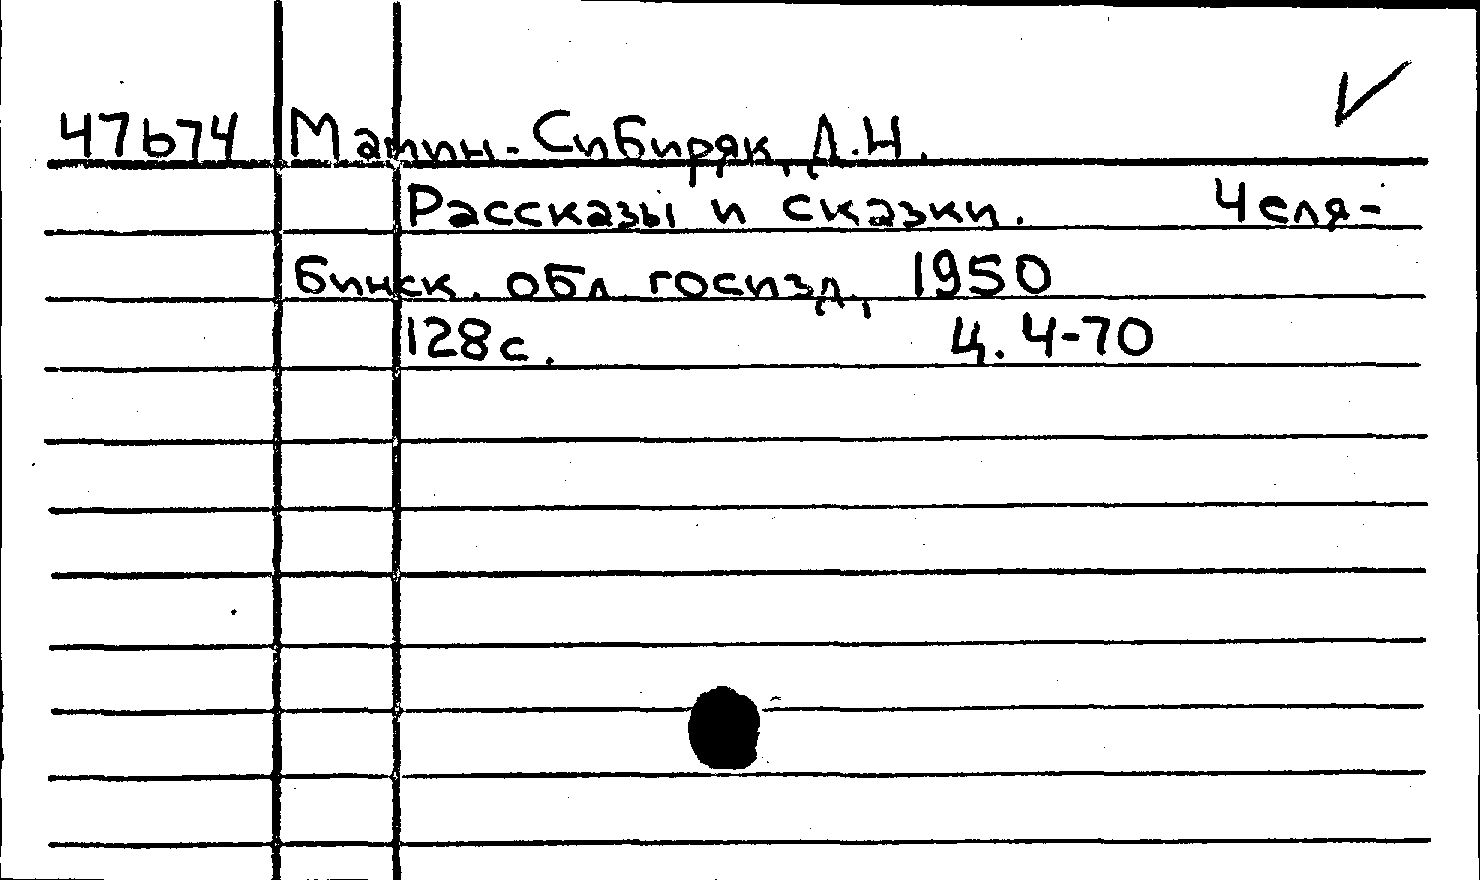 47674 Мамин-Сибиряк, Д.Н.
Рассказы и сказки. Челя-
бинск. обл. госизд, 1950
128с. Ц. 4-70